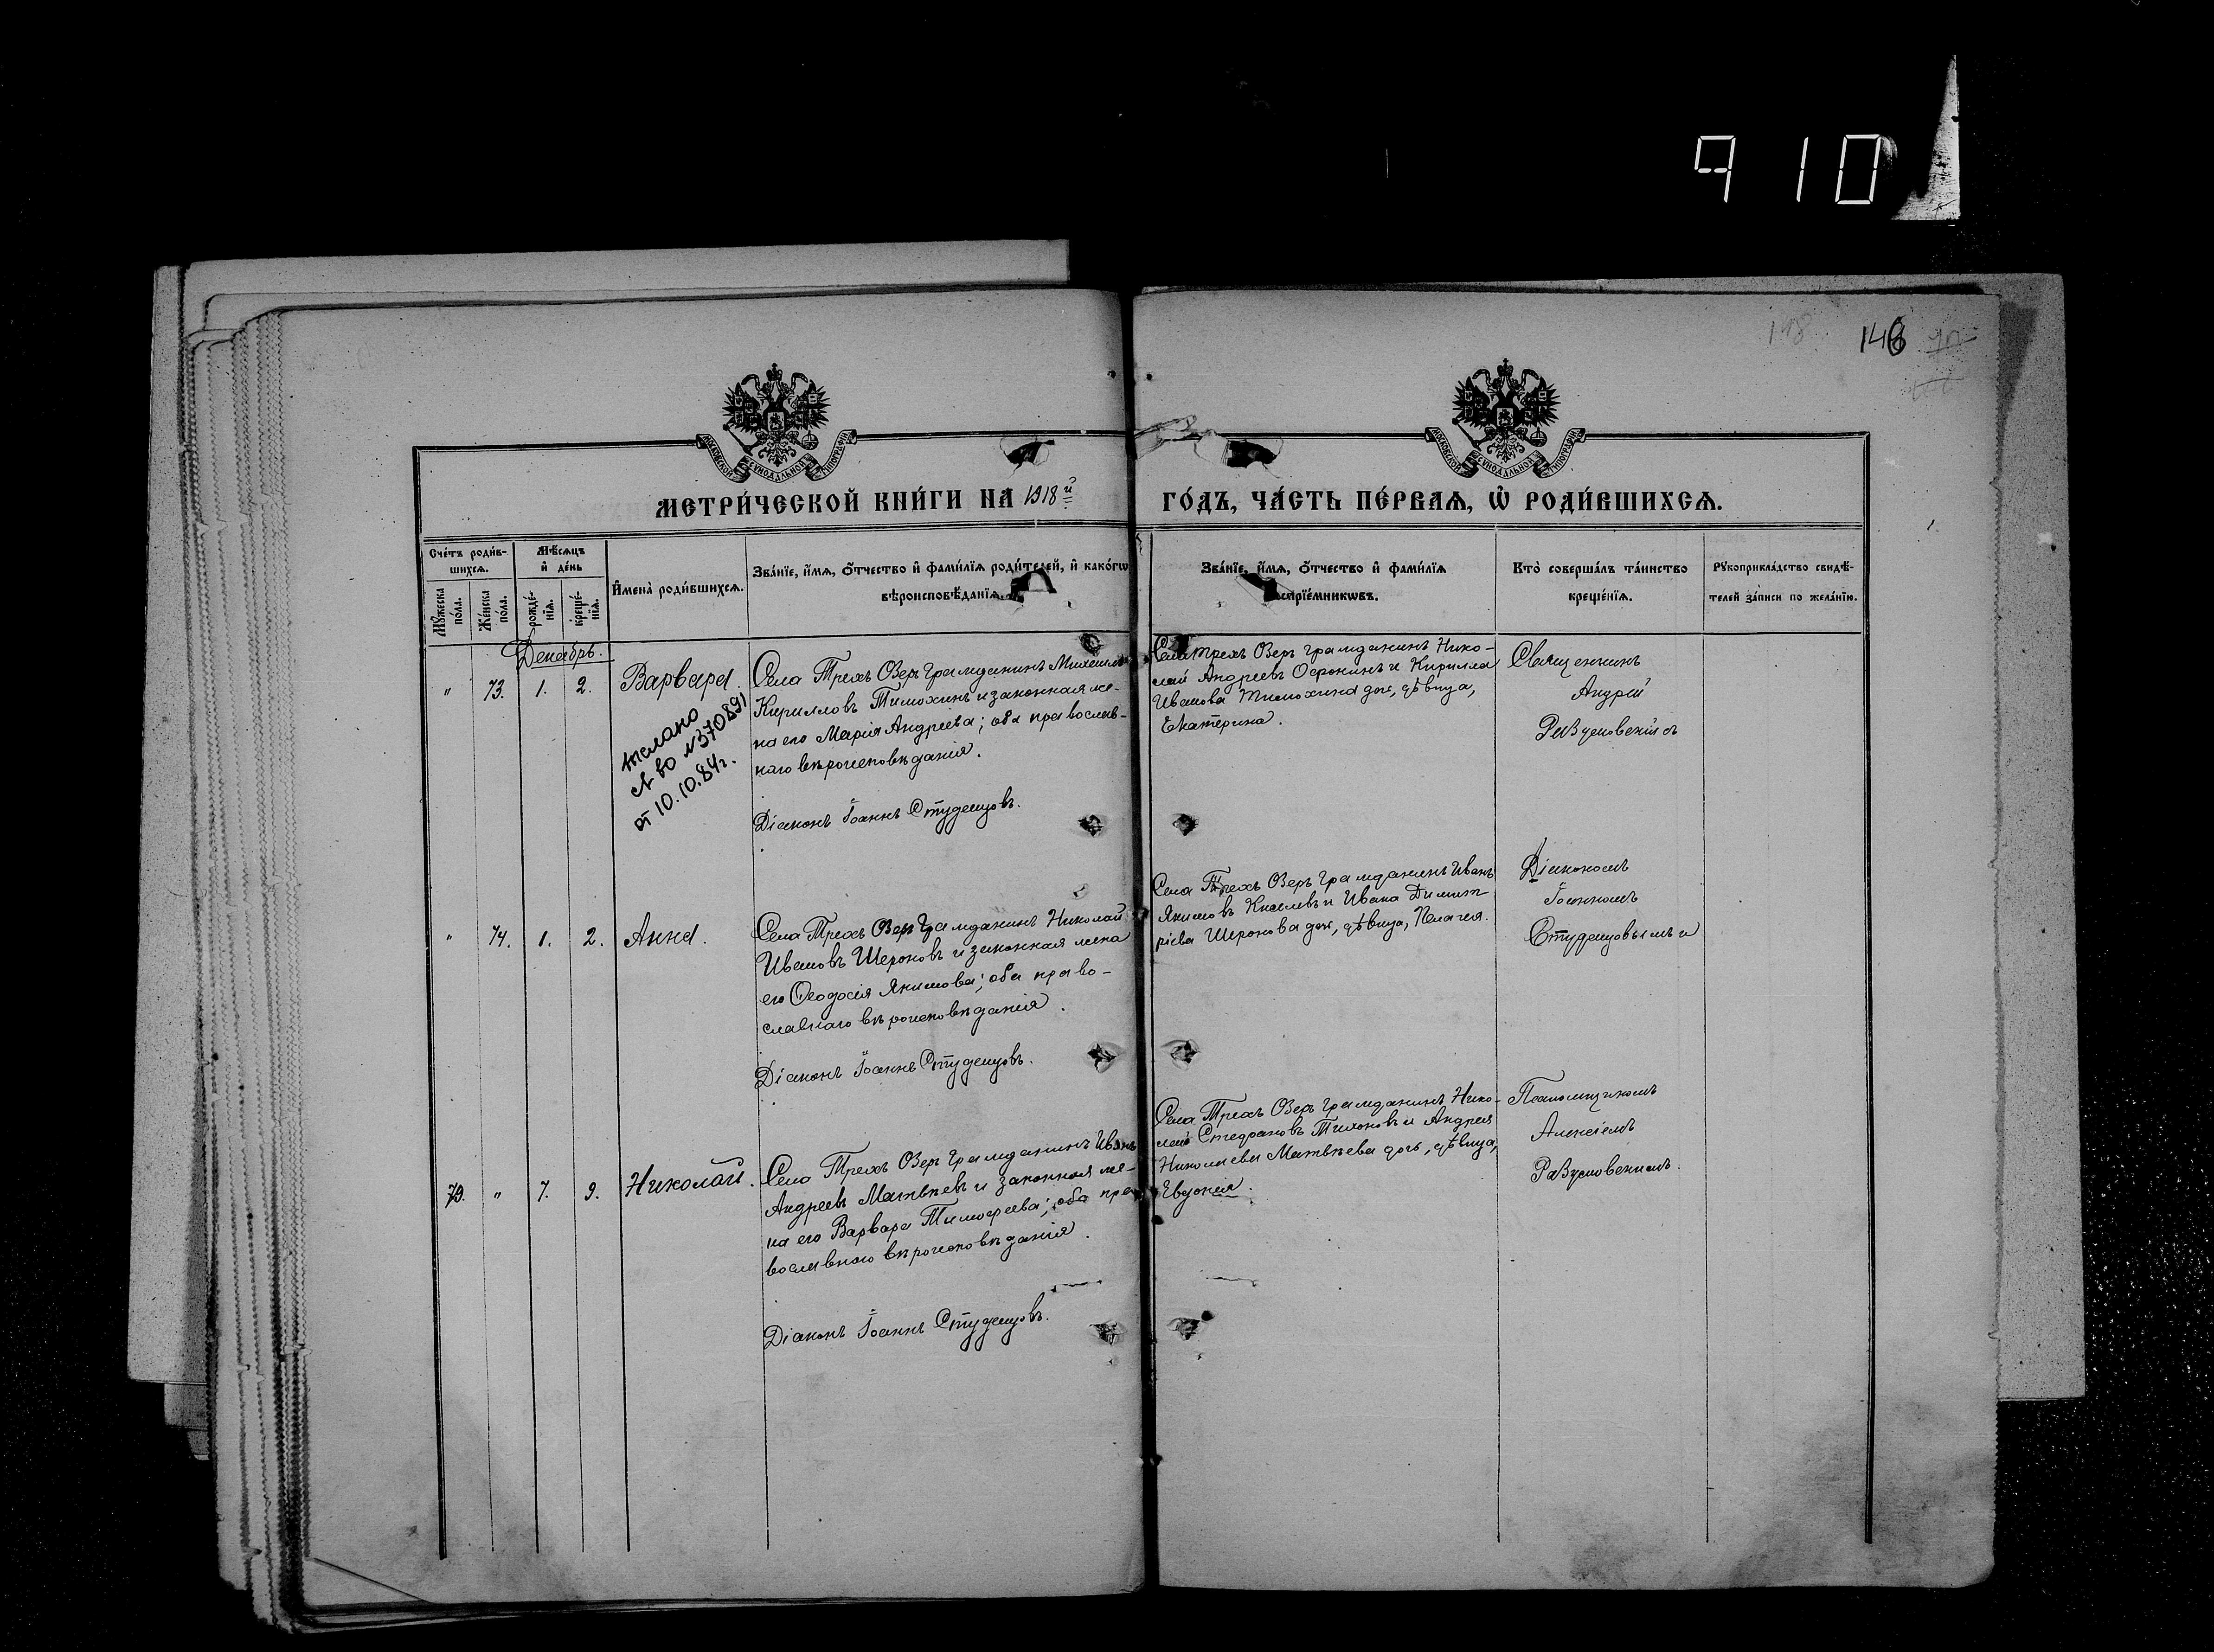 910
148 146
МОСКОВСКОЙ СѴНОДАЛЬНОЙ ТИПОГРАФІИ
МОСКОВСКОЙ СѴНОДАЛЬНОЙ ТИПОГРАФІИ
МЕТРИ́ЧЕСКОЙ КНИ́ГИ НА 1918й ГО́ДЪ, ЧА́СТЬ ПЕ́РВАѦ, Ѡ҆ РОДИ́ВШИХСѦ.
Сче́тъ роди́в-
шихсѧ.
Мꙋ́жеска по́ла.
Же́нска по́ла.
Мѣ́сѧцъ
и҆ де́нь
рожде́-
нїѧ.
креще́-
нїѧ.
И҆мена̀ роди́вшихсѧ.
Зва́нїе, и҆́мѧ, ѻ҆́тчество и҆ фами́лїѧ роди́телей, и҆ како́гѡ
вѣроисповѣ́данїѧ.
Зва́нїе, и҆́мѧ, ѻ҆́тчество и҆ фами́лїѧ
воспрїе́мникѡвъ.
Кто̀ соверша́лъ та́инство
креще́нїѧ.
Рꙋкоприкла́дство свидѣ́-
телей за́писи по жела́нїю.
Декабрь.
" 73. 1. 2. Варвара.
Села Трехъ Озеръ гражданинъ Михаилъ
Кирилловъ Тимохинъ и законная же-
на его Марія Андреева; оба православ-
наго вѣроисповѣданія.
Діаконъ Іоаннъ Студенцовъ.
св во №370891
от 10.10.84г.
Села Трехъ Озеръ гражданинъ Нико-
лай Андреевъ Офронинъ и Кирилла
Иванова Тимохина дочь, дѣвица,
Екатерина.
Священникъ
Андрей
Разумовскій
" 74. 1. 2. Анна.
Села Трехъ Озеръ гражданинъ Николай
Ивановъ Шероновъ и законная жена
его Ѳеодосія Якимова; оба право-
славнаго вѣроисповѣданія.
Діаконъ Іоаннъ Студенцовъ.
Села Трехъ Озеръ гражданинъ Иванъ
Якимовъ Киселевъ и Ивана Димит-
ріева Шеронова дочь, дѣвица, Пелагея.
Діакономъ
Іоанномъ
Студенцовымъ и
79. " 7. 9. Николай.
Села Трехъ Озеръ гражданинъ Иванъ
Андреевъ Матвѣевъ и законная же-
на его Варвара Тимофеева; оба пра-
вославнаго вѣроисповѣданія.
Діаконъ Іоаннъ Студенцовъ.
Села Трехъ Озеръ гражданинъ Нико-
лай Стефановъ Тихоновъ и Андрея
Николаева Матвѣева дочь, дѣвица,
Евдокія.
Псаломщикомъ
Алексіемъ
Разумовскимъ.